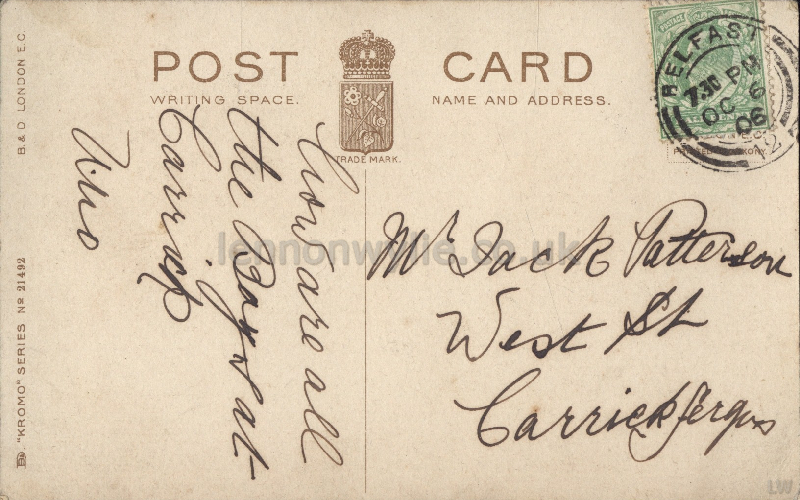 POST CARD
WRITING SPACE.
NAME AND ADDRESS.
TRADE MARK.
B & D LONDON E.C.
"KROMO" SERIES No 21492
BELFAST
7.30 PM
OC 6
06
12
How are all
the Boys at
Carrick
Mr Jack Patterson
West St
Carrickfergus
lennonwylie.co.uk
LW